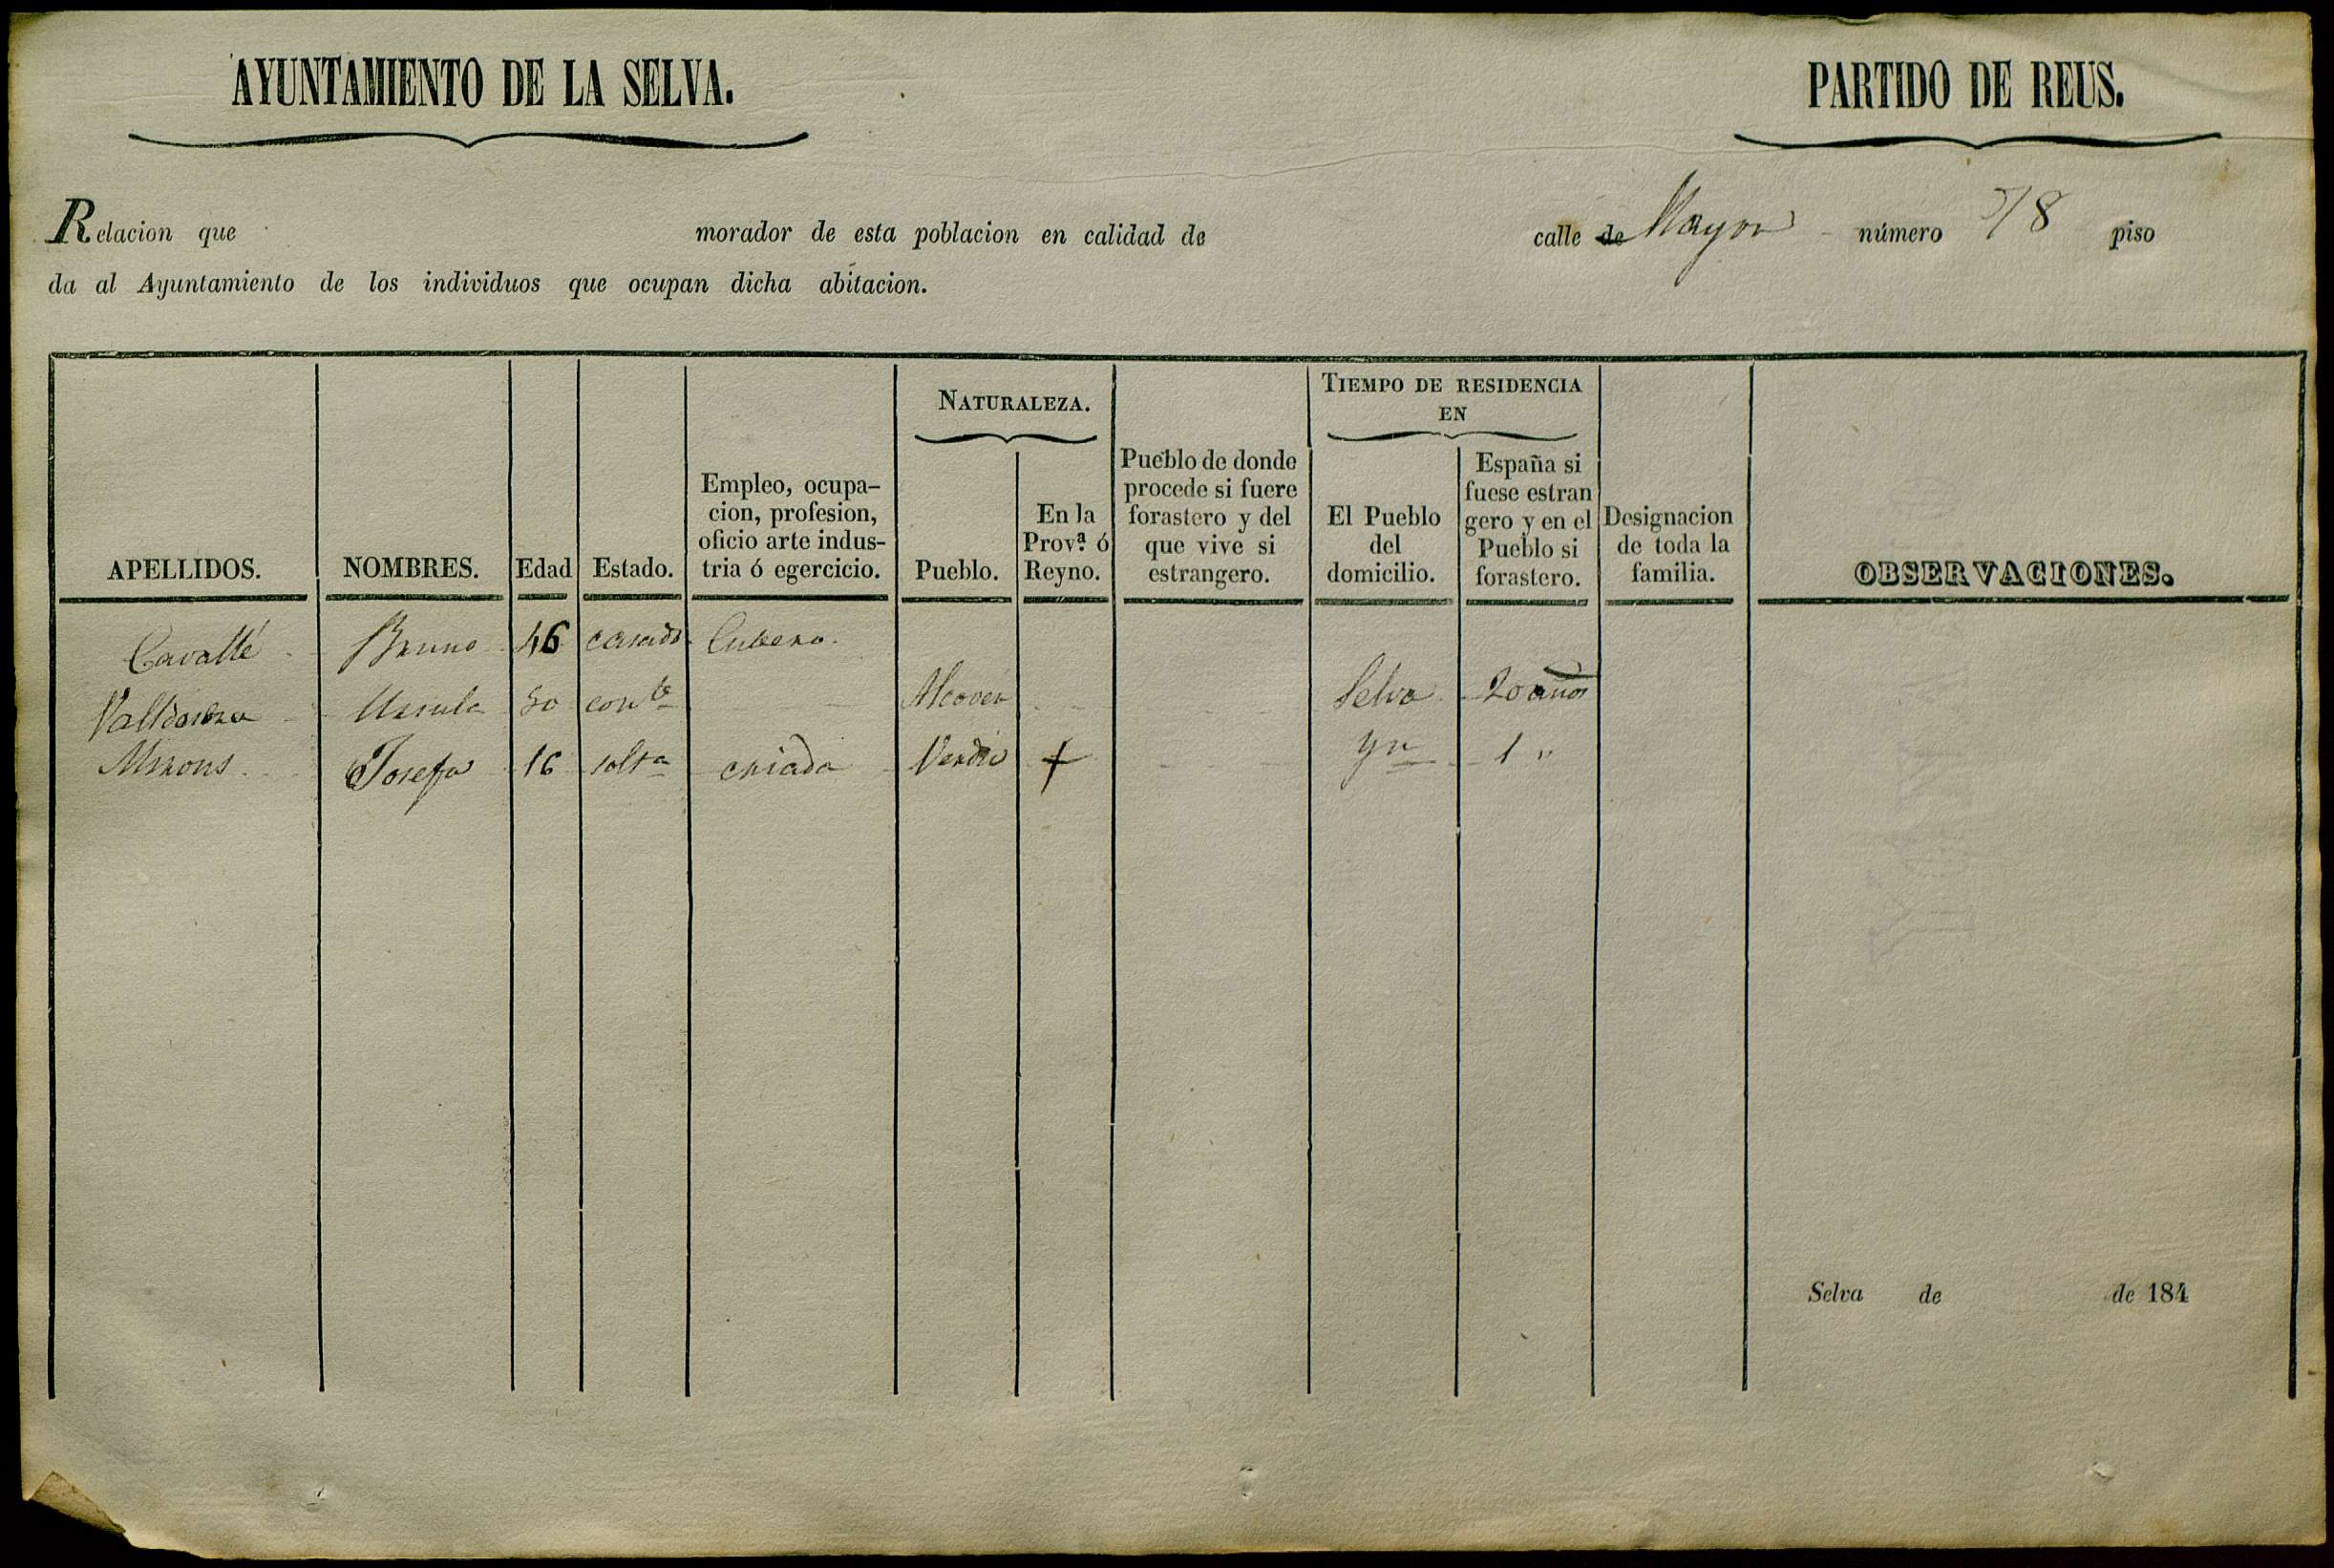 AYUNTAMIENTO DE LA SELVA.
PARTIDO DE REUS.
Relacion que morador de esta poblacion en calidad de calle de Mayor número 78 piso
da al Ayuntamiento de los individuos que ocupan dicha abitacion.
APELLIDOS.
NOMBRES.
Edad
Estado.
Empleo, ocupa-
cion, profesion,
oficio arte indus-
tria ó egercicio.
NATURALEZA.
Pueblo.
En la
Prov.ª ó
Reyno.
Pueblo de donde
procede si fuere
forastero y del
que vive si
estrangero.
TIEMPO DE RESIDENCIA
EN
El Pueblo
del
domicilio.
España si
fuese estran
gero y en el
Pueblo si
forastero.
Designacion
de toda la
familia.
OBSERVACIONES.
Cavallé Bruno 46 casado Cubero.
Ursula 50 con.te Alcover Selva 20 años
Josefa 16 solt.a criada + Yn 1 "
Selva de de 184